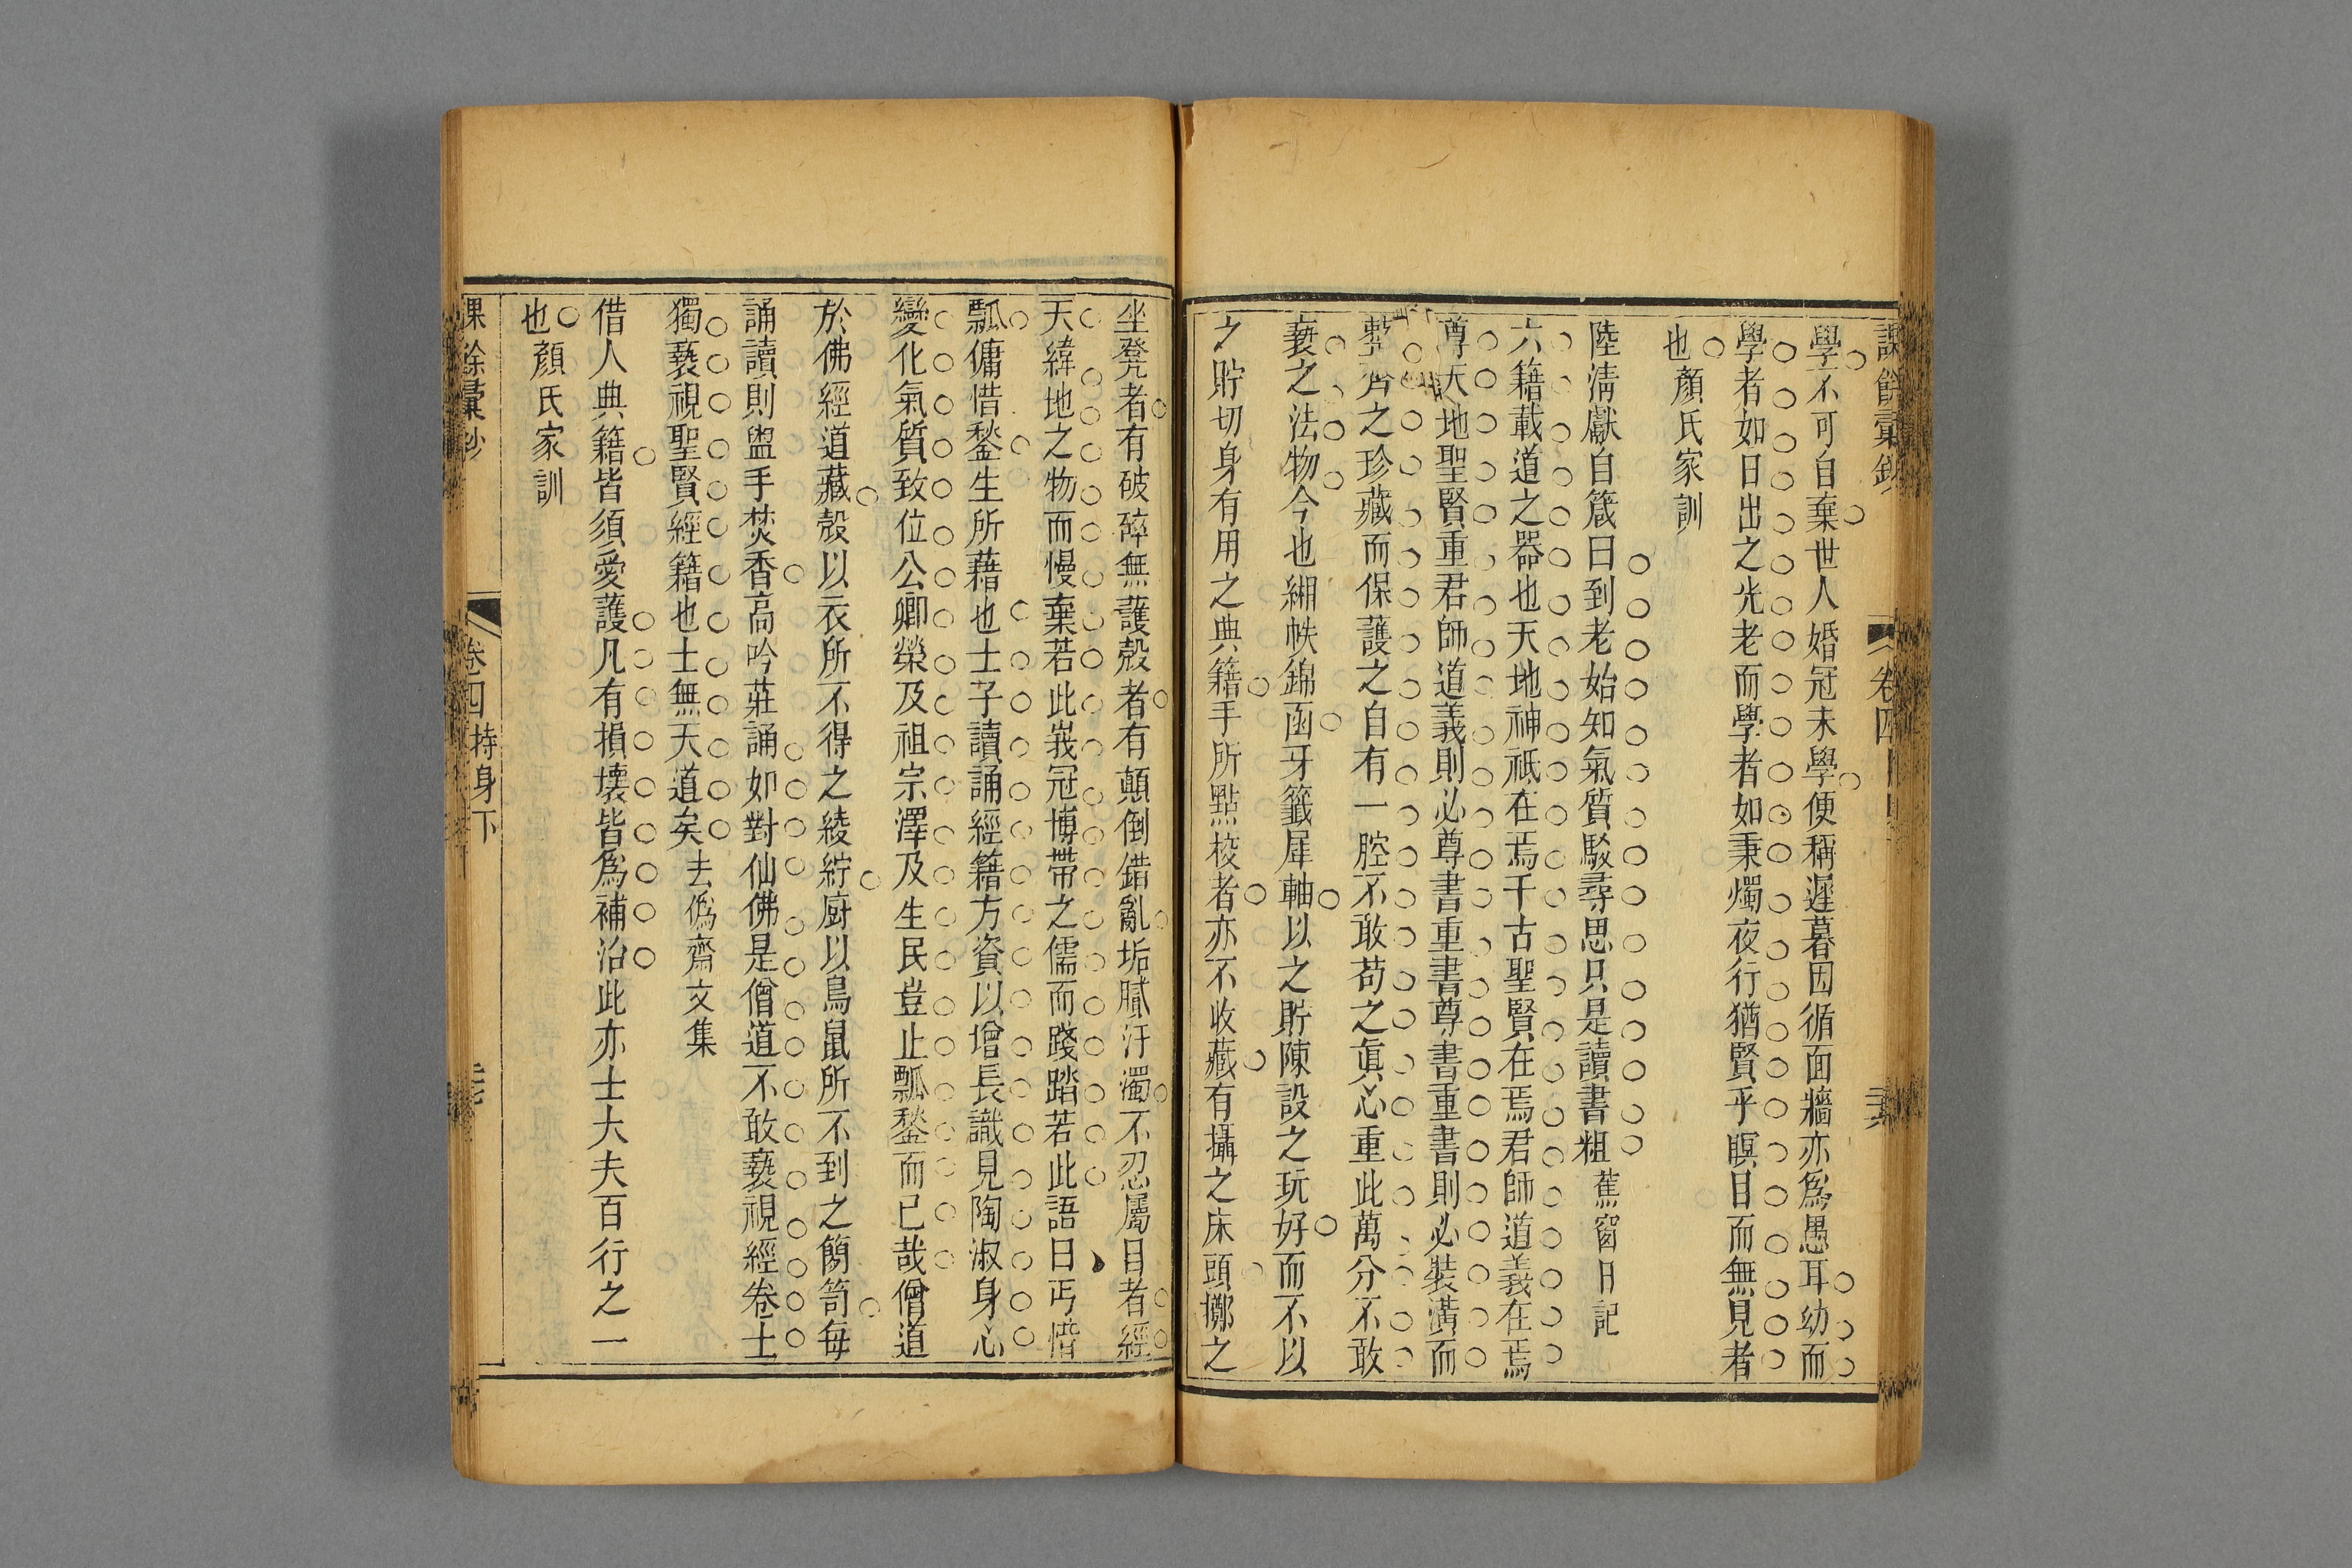 課餘彙鈔
卷四
二十六
學不可自棄世人婚冠未學便稱遲暮因循面牆亦爲愚耳幼而
學者如日出之光老而學者如秉燭夜行猶賢乎瞑目而無見者
也顏氏家訓
陸淸獻自箴曰到老始知氣質駁尋思只是讀書粗蕉窗日記
六籍載道之器也天地神祇在焉千古聖賢在焉君師道義在焉
尊天地聖賢重君師道義則必尊書重書尊書重書則必裝潢而
整齊之珍藏而保護之自有一腔不敢苟之眞心重此萬分不敢
褻之法物今也緗帙錦函牙籤犀軸以之貯陳設之玩好而不以
之貯切身有用之典籍手所點校者亦不收藏有攝之床頭擲之
坐凳者有破碎無護殼者有顛倒錯亂垢膩汙濁不忍屬目者經
天緯地之物而慢棄若此峩冠博帶之儒而踐踏若此語曰丐惜
瓢傭惜鍫生所藉也士子讀誦經籍方資以增長識見陶淑身心
變化氣質致位公卿榮及祖宗澤及生民豈止瓢鍫而已哉僧道
於佛經道藏殼以衣所不得之綾綷廚以鳥鼠所不到之簡笥每
誦讀則盥手焚香高吟莊誦如對仙佛是僧道不敢褻視經卷士
獨褻視聖賢經籍也士無天道矣去僞齋文集
借人典籍皆須愛護凡有損壞皆爲補治此亦士大夫百行之一
也顏氏家訓
課餘彙鈔
卷四
持身下
二十七